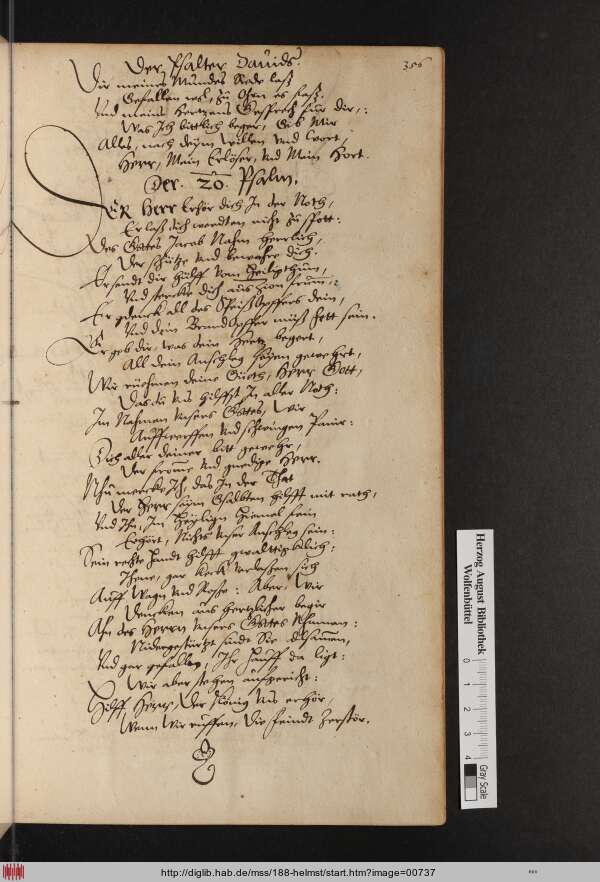 Der Psalter Dauids.
356
Dir meines Mundes Rede laß
Gefallen wol, Zu Ohrn es faß.
Und meins Hertzens Gesprech für dir,:
Was Ich bittlich beger, Gib Mir
Alles, nach deim willen vnd wort,
Herr, Mein Erlöser, vnd Mein Hort.
Der. 20. Psalm.
DER Herr Erhör dich In der Noth,
Er laß dich werdten nicht Zu spott:
Des Gottes Jacob Nahm Herrlich,
Der schütze vnd bewahre dich.
Er sendt dir Hülff vom Heiligthum,
Vnd stercke dich aus Zion frumm:
Er gdenck all des Speißopffers dein,
Vnd dein Brandopffer muß fett sein.
Er geb dir, was dein Hertz begert,
All dein Anschleg gewehrt,
Wir rühmen deine Güeth, Herr Gott,
Das du vns hilffst In aller Noth:
Im Nahmen vnsers Gottes, Wir
Auffwerffen vnd schwingen Panir:
Dich aller deiner bitt gewehr,
Der fromme vnd gnedige Herr.
Nhu mercke Ich, das In der That
Der Herr seim Gsalbten hilfft mit rath,
Vnd Ihn, Im Heylign Himel sein
Erhört, Nichts vnser Anschleg sein:
Sein rechte Handt hilfft gwalttiglich;
Jhene, gar keck verlaßen sich
Auff Wagn vnd Roße: Aber, Wir
Dencken aus hertzlicher begir
An des Herrn vnsers Gottes Nhamen:
Nidergestürtzt sindt Sie alsamen,
Vnd gar gefallen, Ihr Hauff da ligt:
Wir aber stehen aufgericht:
Hilff, Herr, Der König vns erhör,
Wenn Wir ruffen, Die feindt Zerstör.
Herzog August Bibliothek
Wolfenbüttel
0 1 2 3 4
Gray Scale
http://diglib.hab.de/mss/188-helmst/start.htm?image=00737